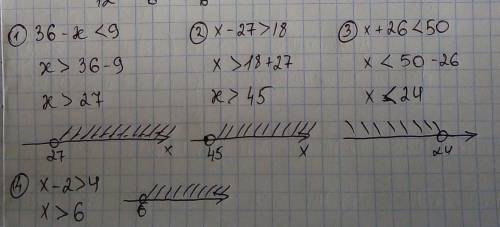 ① 36 - x < 9
x > 36 - 9
x > 27
27 x
② x - 27 > 18
x > 18 + 27
x > 45
45 x
③ x + 26 < 50
x < 50 - 26
x < 24
24
④ x - 2 > 4
x > 6
6